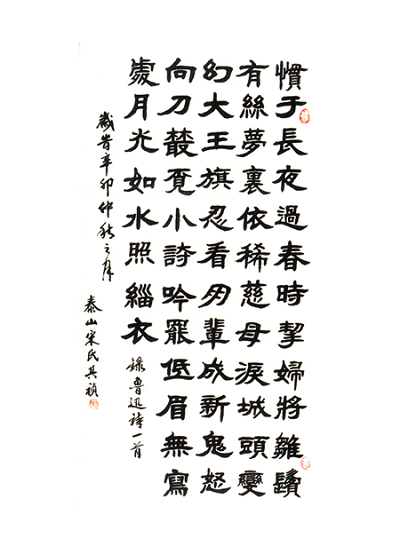 慣于長夜過春時挈婦將雛鬢
有絲夢裏依稀慈母淚城頭變
幻大王旗忍看朋輩成新鬼怒
向刀叢覓小詩吟罷低眉無寫
處月光如水照緇衣 錄魯迅詩一首
歲旹辛卯仲秋之月
泰山宋氏其禎